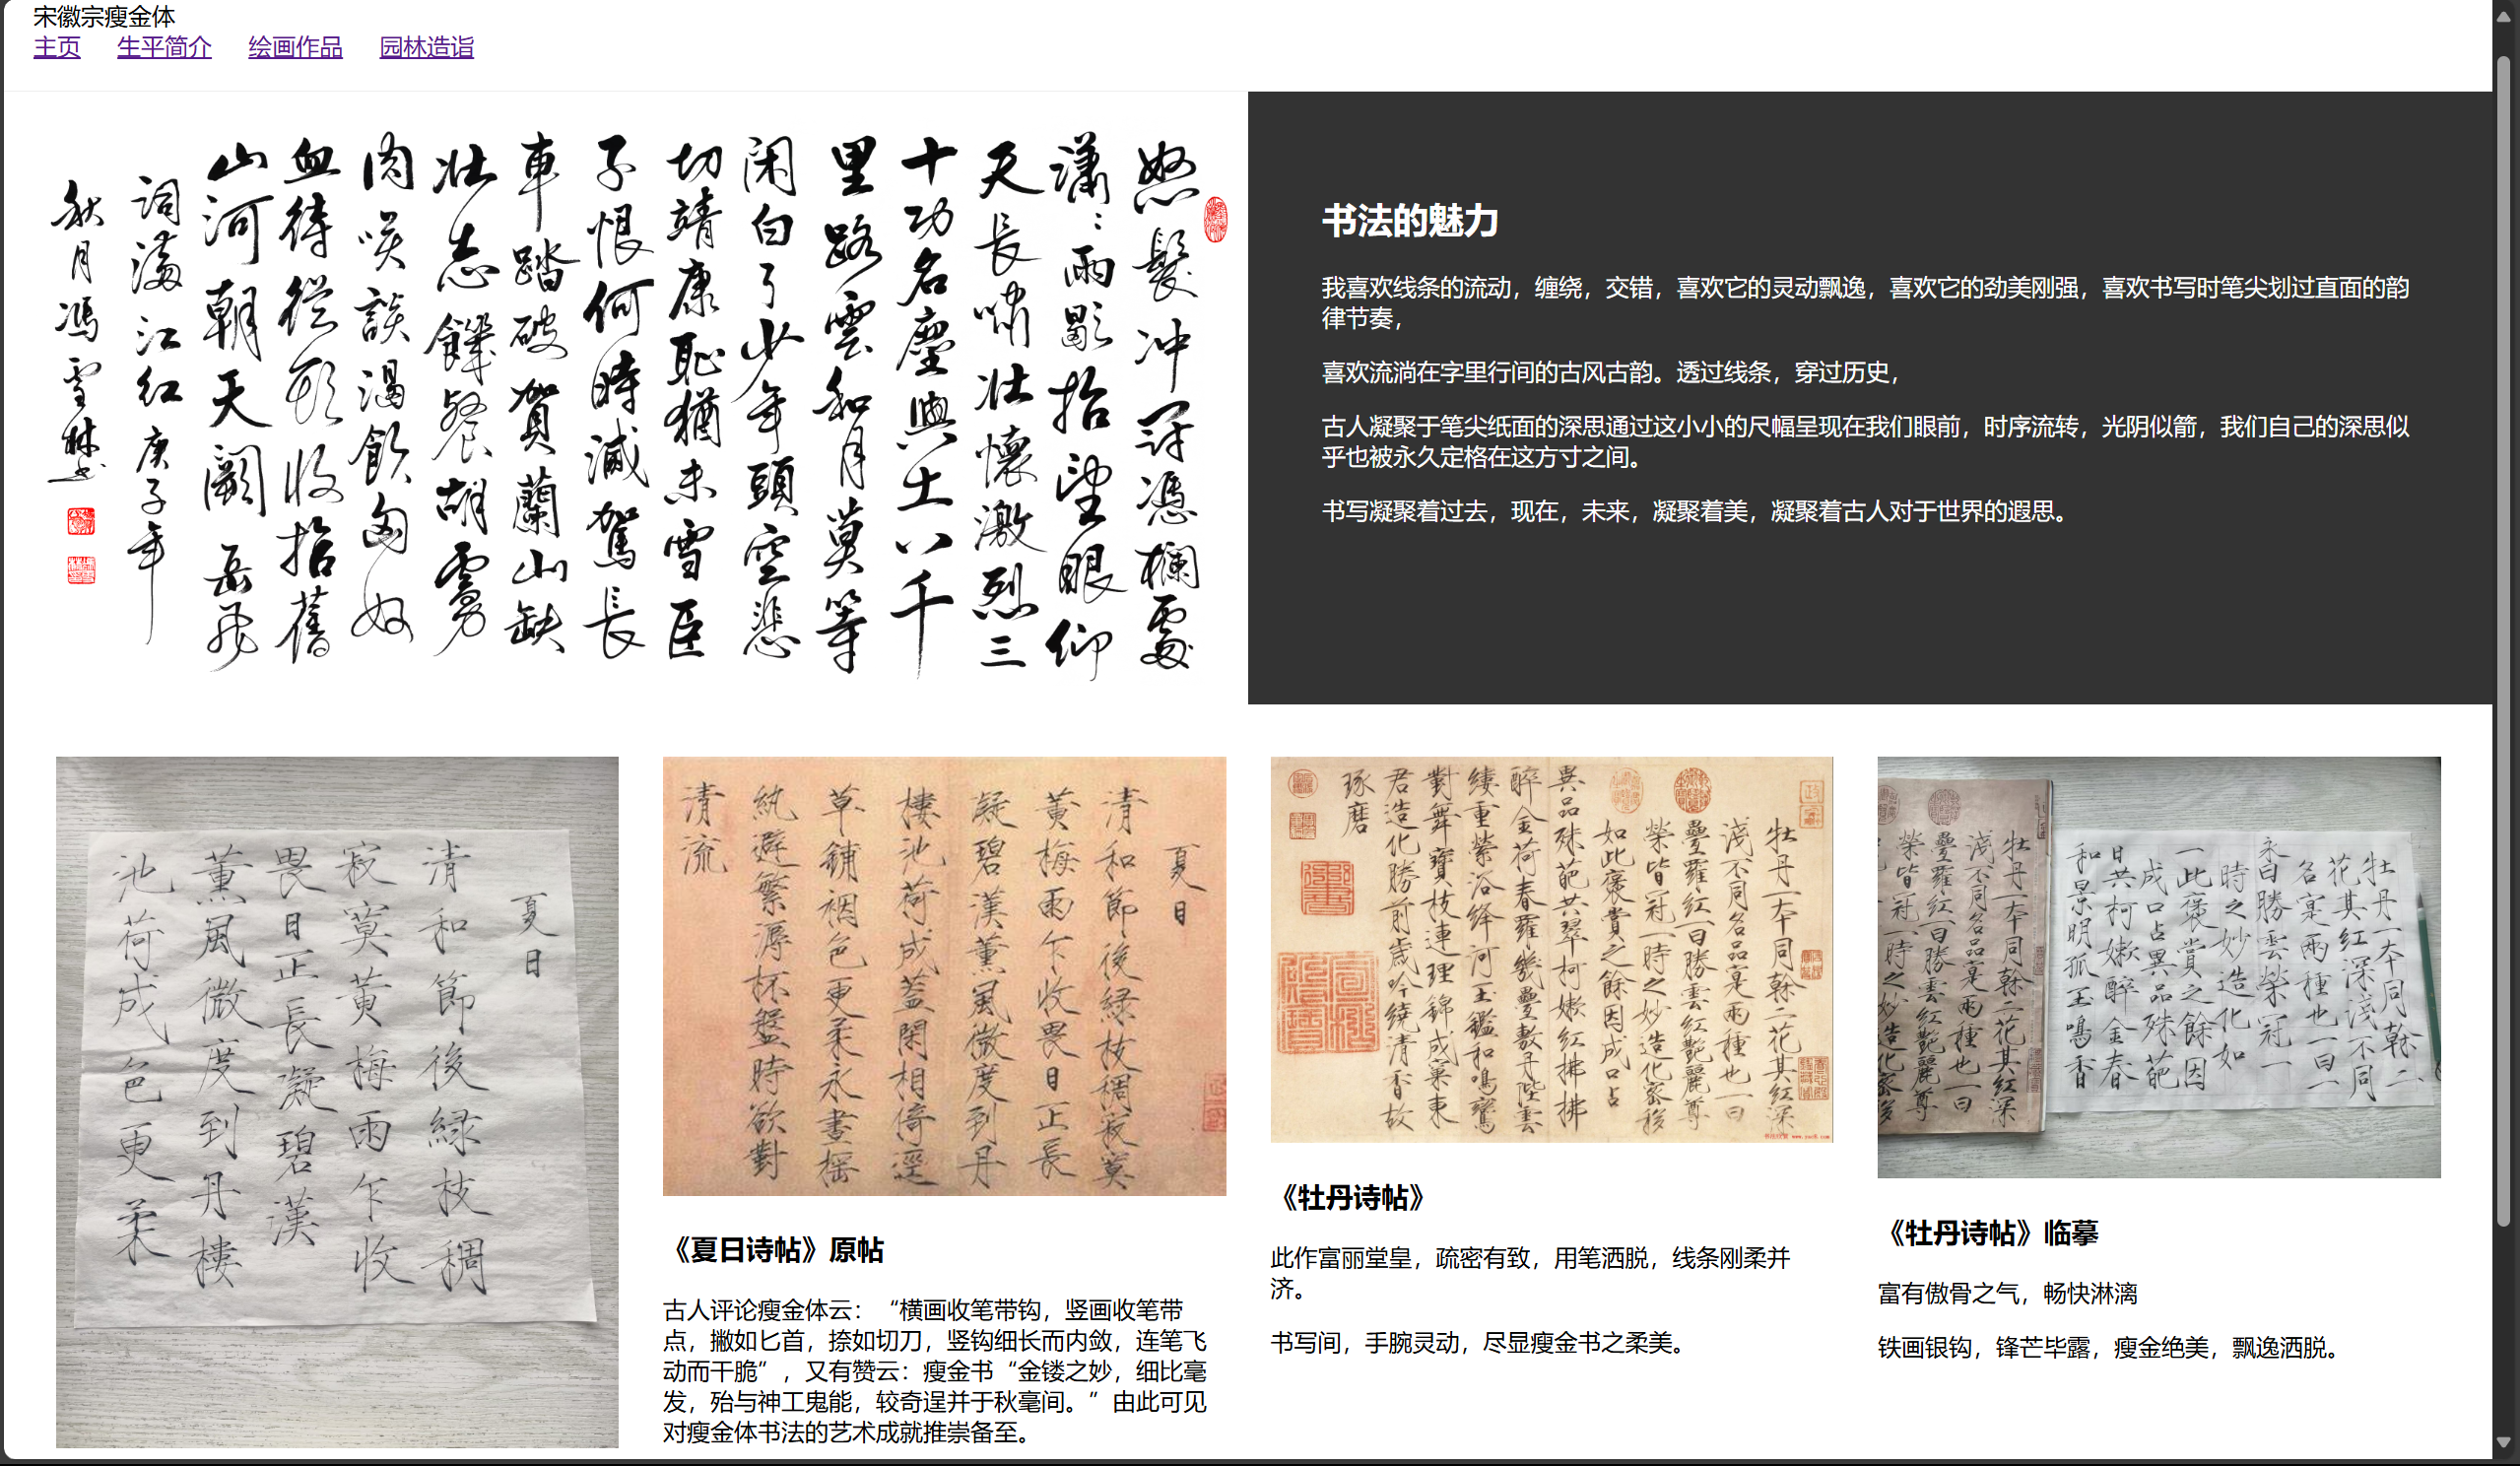 宋徽宗瘦金体
主页 生平简介 绘画作品 园林造诣
怒髮冲冠憑欄處
瀟〻雨歇抬望眼仰
天長嘯壯懷激烈三
十功名塵與土八千
里路雲和月莫等
閑白了少年頭空悲
切靖康恥猶未雪臣
子恨何時滅駕長
車踏破賀蘭山缺
壯志饑餐胡虜
肉笑談渴飲匈奴
血待從頭收拾舊
山河朝天闕 岳飛
詞滿江红 庚子年
秋月馮雪林书
书法的魅力
我喜欢线条的流动，缠绕，交错，喜欢它的灵动飘逸，喜欢它的劲美刚强，喜欢书写时笔尖划过直面的韵
律节奏，
喜欢流淌在字里行间的古风古韵。透过线条，穿过历史，
古人凝聚于笔尖纸面的深思通过这小小的尺幅呈现在我们眼前，时序流转，光阴似箭，我们自己的深思似
乎也被永久定格在这方寸之间。
书写凝聚着过去，现在，未来，凝聚着美，凝聚着古人对于世界的遐思。
夏日
清和節後緑枝稠
寂寞黄梅雨乍收
畏日正長凝碧漢
薰風微度到丹樓
池荷成色更柔
夏日
清和節後緑枝稠寂寞
黄梅雨乍收畏日正長
凝碧漢薰風微度到丹
樓池荷成蓋閑相倚逕
草鋪裀色更柔永晝摇
紈避繁溽杯盤時欲對
清流
《夏日诗帖》原帖
古人评论瘦金体云：“横画收笔带钩，竖画收笔带
点，撇如匕首，捺如切刀，竖钩细长而内敛，连笔飞
动而干脆”，又有赞云：瘦金书“金镂之妙，细比毫
发，殆与神工鬼能，较奇逞并于秋毫间。”由此可见
对瘦金体书法的艺术成就推崇备至。
牡丹一本同榦二花其紅深
淺不同名品寔兩種也一曰
疊羅紅一曰勝雲紅艷麗尊
榮皆冠一時之妙造化密移
如此褒賞之餘因成口占
異品殊葩共翠柯嫩紅拂拂
醉金荷春羅幾疊敷丹陛雲
縷重縈浴絳河玉鑑和鳴鸞
對舞寶枝連理錦成窠東
君造化勝前歲吟繞清香故
琢磨
《牡丹诗帖》
此作富丽堂皇，疏密有致，用笔洒脱，线条刚柔并
济。
书写间，手腕灵动，尽显瘦金书之柔美。
牡丹一本同榦二花其紅深
淺不同名品寔兩種也一曰
疊羅紅一曰勝雲紅艷麗尊
榮皆冠一時之妙造化密移
牡丹一本同榦二
花其紅深淺不同
名寔兩種也一曰一
永曰勝雲榮冠一
時之妙造化如
一此褒賞之餘因
成口占異品殊葩
日共柯嫩醉金春
和景明孤玉鳴香
《牡丹诗帖》临摹
富有傲骨之气，畅快淋漓
铁画银钩，锋芒毕露，瘦金绝美，飘逸洒脱。